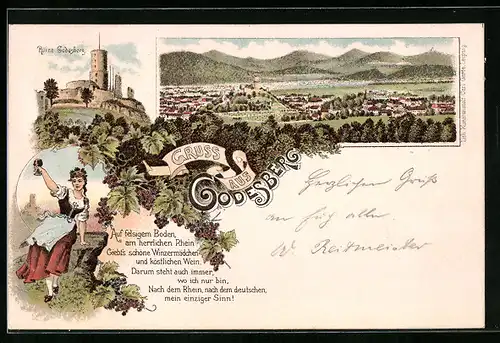 Ruine Godesberg
GRUSS
AUS
GODESBERG
Auf felsigem Boden,
am herrlichen Rhein
Giebt's schöne Winzermädchen
und köstlichen Wein.
Darum steht auch immer,
wo ich nur bin,
Nach dem Rhein, nach dem deutschen,
mein einziger Sinn!
Herzlichen Gruß
an
alle
W. Reitmeister